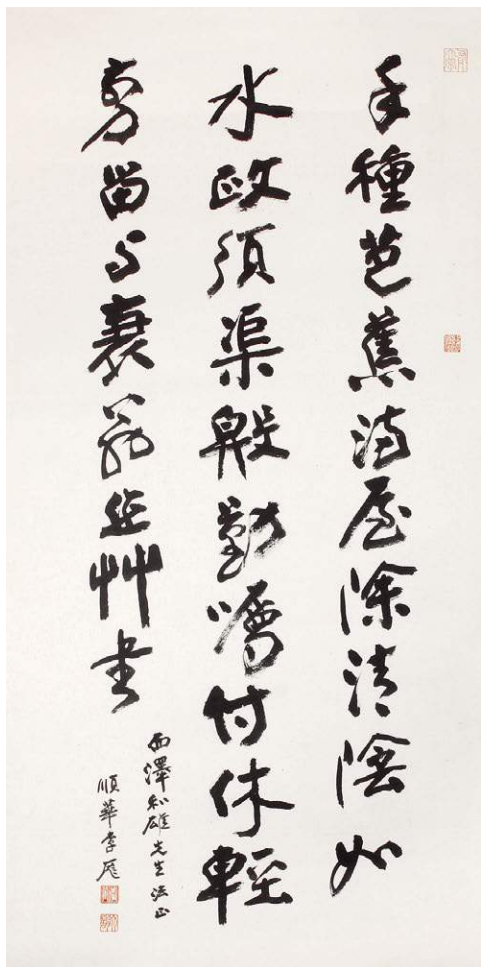 手種芭蕉滿屋除清陰如
水政須渠殷勤囑付休輕
剪留与衰翁作艸書
西澤和雄先生法正
順華李